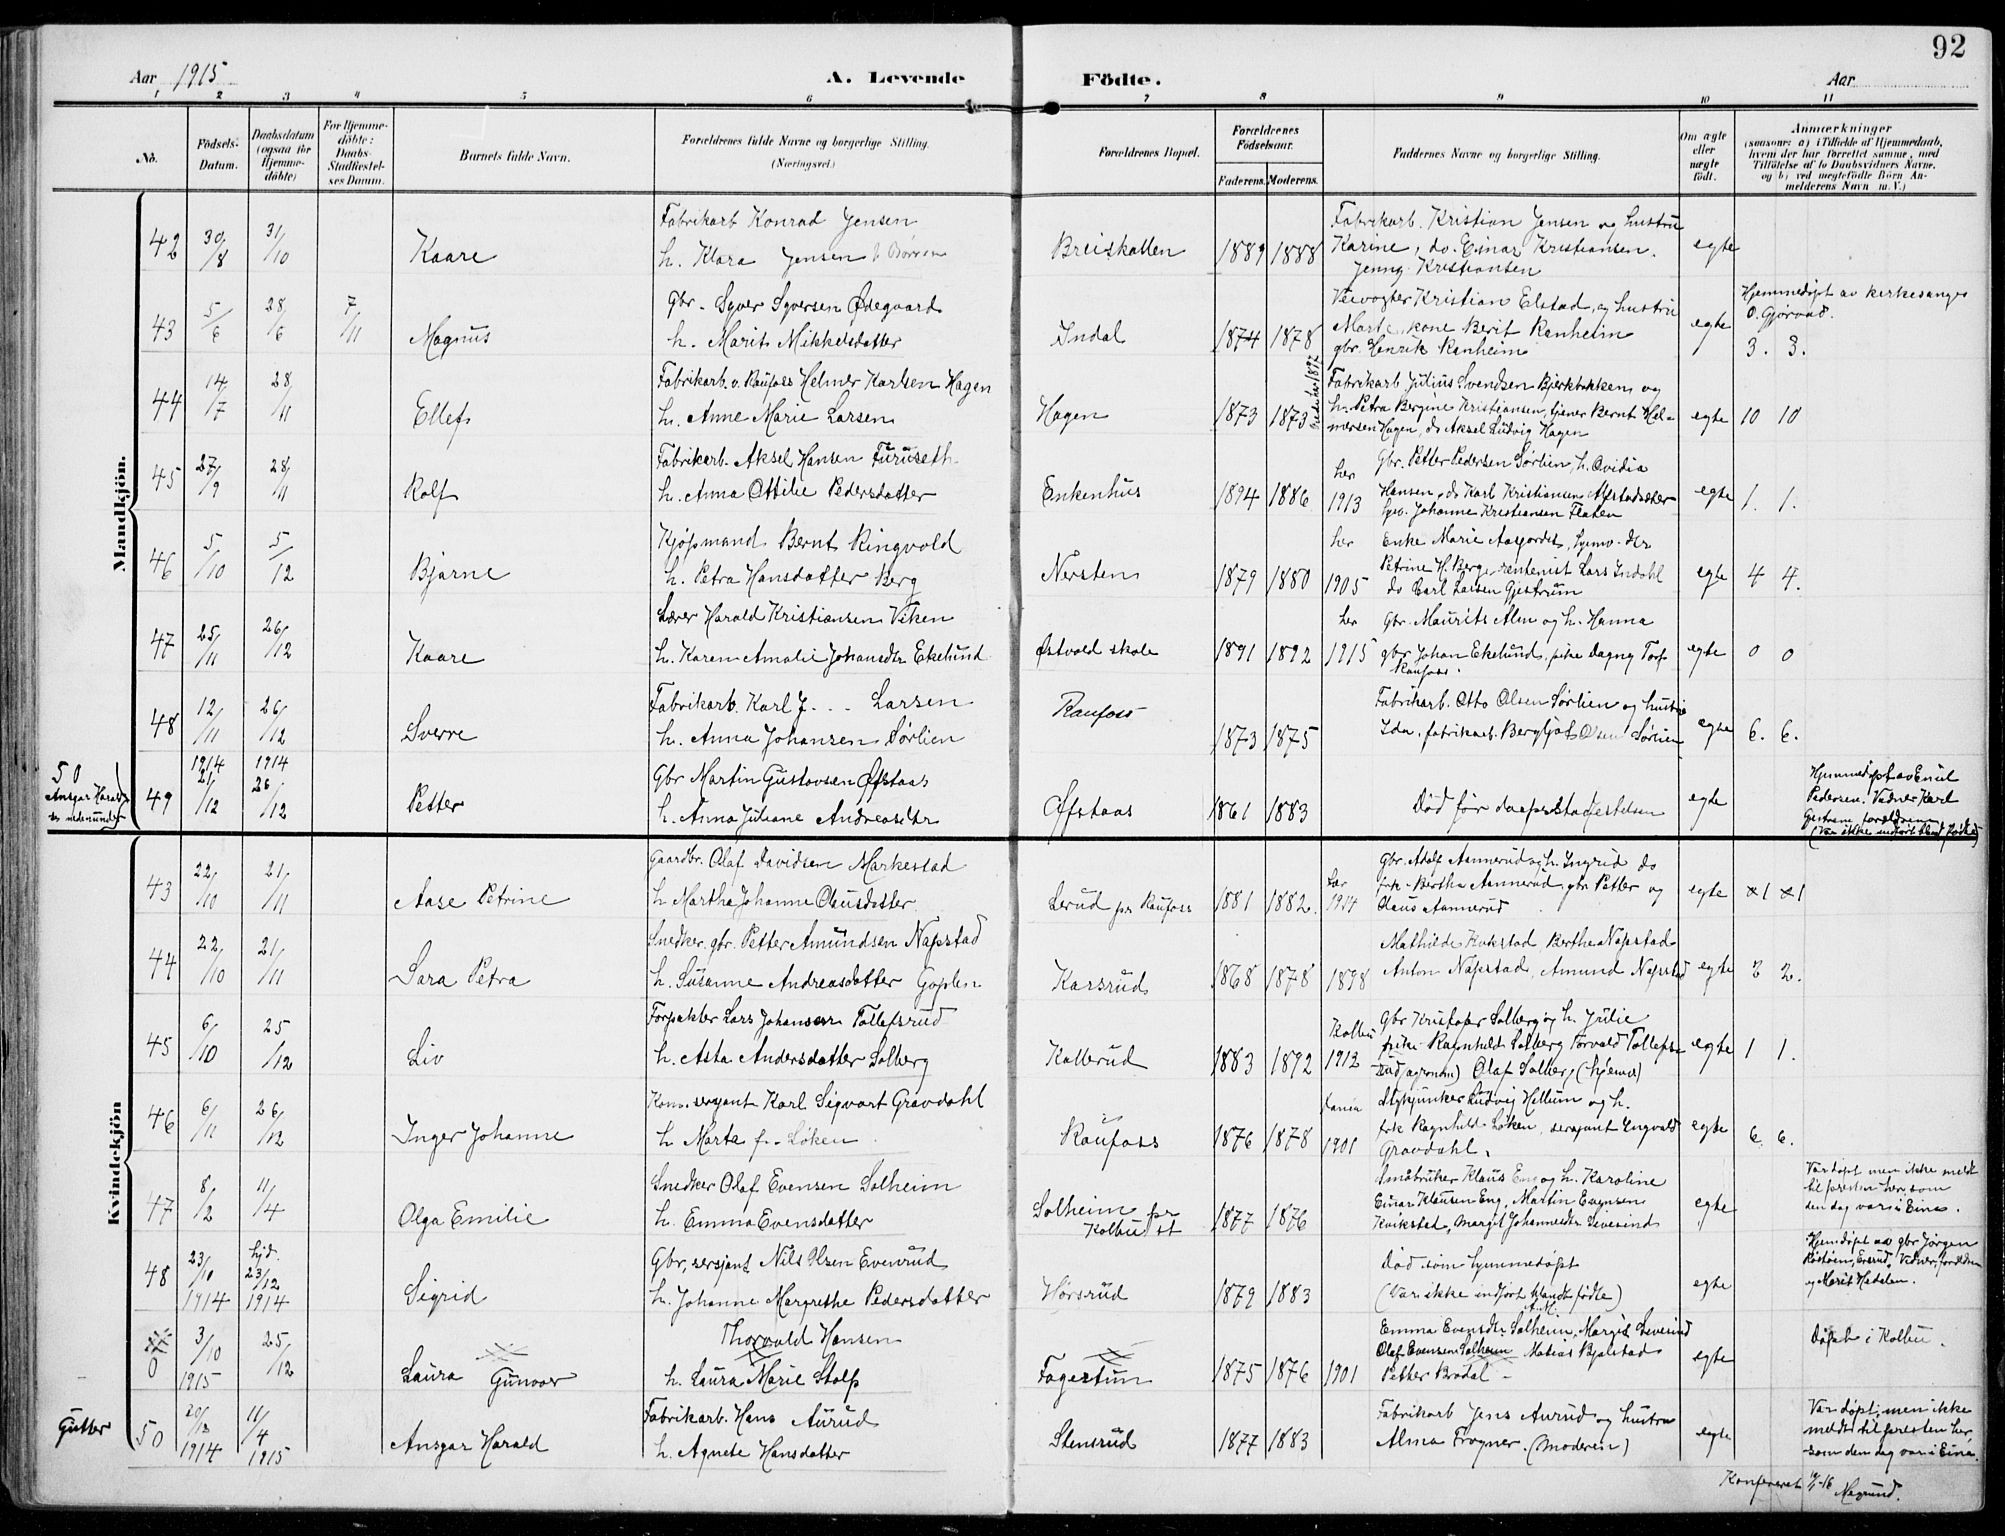 92
Aar 1915
A. Levende
Födte.
Aar
1 2 3 4 5 6 7 8 9 10 11
No.
Födsels-Datum.
Daabsdatum (ogsaa for Hjemme-döbte)
For Hjemme-döbte: Daabs-Stadfæstel-ses Datum.
Barnets fulde Navn.
Forældrenes fulde Navne og borgerlige Stilling.
(Næringsvei.)
Forældrenes Bopæl.
Forældrenes Födselsaar.
Faderens. Moderens.
Faddernes Navne og borgerlige Stilling.
Om ægte eller uægte födt.
Anmærkninger
(saasom: a) i Tilfælde af Hjemmedaab, hvem der har forrettet samme, med Tilföielse af to Daabsvidners Navne. og b) ved uægtefödte Börn An-melderens Navn m. V.)
Mandkjön.
42 30/8 31/10 Kaare
Fabrikarb Konrad Jensen
h. Klara Jensen
Breiskallen 1889 1888
Fabrikarb. Kristian Jensen og hustru
Karine, do. Einar Kristiansen.
Jenny Kristiansen
egte
43 5/6 28/6 7/11 Magnus
Gbr. Syver Syversen Ødegaard
h. Marit Mikkelsdatter
Indal 1874 1878
Veivogter Kristian Elstad, og hustru
Marte, kone Berit Ranheim
gbr. Henrik Ranheim
egte
Hjemmedøpt av kirkesanger
O. Gjørvad.
3. 3.
44 14/7 28/11 Ellef
Fabrikarb. v. Raufoss Helmer Karlsen Hagen
h. Anne Marie Larsen
Hagen 1873 1873
Fabrikarb Julius Svendsen Bjerkbakken og
h. Petra Bergine Kristiansen, tjener Bernt Hel-
mersen Hagen, do Aksel Ludvig Hagen
egte 10 10
45 27/9 28/11 Rolf
Fabrikarb. Aksel Hansen Furuseth
h. Anna Ottilie Pedersdatter
Enkenhus 1894 1886
her
1913
Gbr. Petter Pedersen Sørlien, h. Ovidia
Hansen, do Karl Kristiansen
Johanne Kristiansen Flaten
egte 1. 1.
46 5/10 5/12 Bjarne
Kjøpmand Bernt Ringvold
h. Petra Hansdatter Berg
Nersten 1879 1880
her
1905
Enke Marie
Petrine H. Berg, rentenist Lars Indahl
do Carl Larsen Gjestrum
egte 4 4.
47 25/11 26/12 Kaare
Lærer Harald Kristiansen Viken
h. Karen Amalie Johansdtr Ekelund
Østvold skole 1891 1892
her
1915
Gbr. Maurits Alm og h. Hanna
gbr Johan Ekelund, pike Dagny Torp
Raufoss.
egte 0 0
48 12/11 26/12 Sverre
Fabrikarb. Karl J. . . . Larsen
h. Anna Johansen Sørlien
Raufoss
1873 1875
Fabrikarb. Otto Olsen Sørlien og hustru
Ida, fabrikarb. Bergljot Olsen Sørlien
egte 6. 6.
50
Ansgar Harald
se nedenunder
49 1914 21/12 1914 26/12 Petter
Gbr Martin Gustavsen Øfstaas
h. Anna Juliane Andreasdtr
Øfstaas 1861 1883
Død før daapsstadfestelsen
egte
Hjemmedøpt av Emil
Pedersen. Vidner Karl
Gjestrem, forældrene
(Var ikke indført blandt fødte)
Kvindekjön
43 22/10 21/11 Aase Petrine
Gaardbr. Olaf Davidsen Markestad
h. Martha Johanne Olausdatter
Lerud pr Raufoss 1881 1882.
1914
Gbr. Adolf Aannerud og h. Ingrid do
frk. Bertha Aannerud, gbr Petter og
Olaus Aannerud
egte 1 1
44 22/10 21/11 Sara Petra
Snedker, gbr. Petter Amundsen Napstad
h. Susanne Andreasdatter Goplen
Karsrud 1868 1878 1898
Mathilde Kvikstad, Berthe Napstad
Anton Napstad, Amund Napstad
egte 2 2.
45 6/10 25/12 Liv
Forpakter Lars Johansen Tollefsrud
h. Asta Andersdatter Solberg
Kallerud 1883 1892
Kolbu
1912
Gbr Kristofer Solberg og h. Julie
pike Ragnhild Solberg Torvald Tollefs-
rud (agronom) Olaf Solberg, (hjemme)
egte 1 1.
46 6/11 26/12 Inger Johanne
Kom. sersjant Karl Sigvart Gravdahl
h. Marta f. Løken
Raufoss 1876 1878
1901
Stykjunker Ludvig Hellum og h.
frk Ragnhild Løken, sersjant Engvald
Gravdahl.
egte 6. 6.
47 8/2 11/4 Olga Emilie
Snedker Olaf Evensen Solheim
h. Emma Evensdatter
Solheim pr
Kolbu st
1877 1876
Småbruker Klaus Eng og h. Karoline
Einar Klausen Eng, Martin Evensen
Kvikstad, Margit Johannesdtr Sivesind
egte
Var døpt men ikke meldt
til presten her, som
den dag var i Eina.
48 23/10 1914 hjd. 23/12 1914 Sigrid
Gbr, sersjant Nils Olsen Evenrud
h. Johanne Margrethe Pedersdatter
Hørsrud 1879 1883
Død som hjemmedøpt
(Var ikke indført blandt fødte)
egte
Hjemdøpt av gbr Jørgen
Vidner, forældrene
og Marit Hadelen.
0 3/10 1915 25/12 Laura Gunvor
Thorvald Hansen
h. Laura Marie Stolp
Fagertun 1875 1876 1901
Emma Evensdtr Solheim, Margit Sivesind
Olaf Evensen Solheim Matias Bjølstad
Petter Brødal
egte
Døpt i Kolbu.
Gutter
50 20/12 1914 11/4 1915 Ansgar Harald
Fabrikarb. Hans Aurud
h. Agnete Hansdatter
Stensrud 1877 1883
Fabrikarb Jens Aurud og hustru
Alma Frogner. (moderen)
egte
Var døpt, men ikke
meldt til presten her,
som den dag var i Eina.
Konfereret